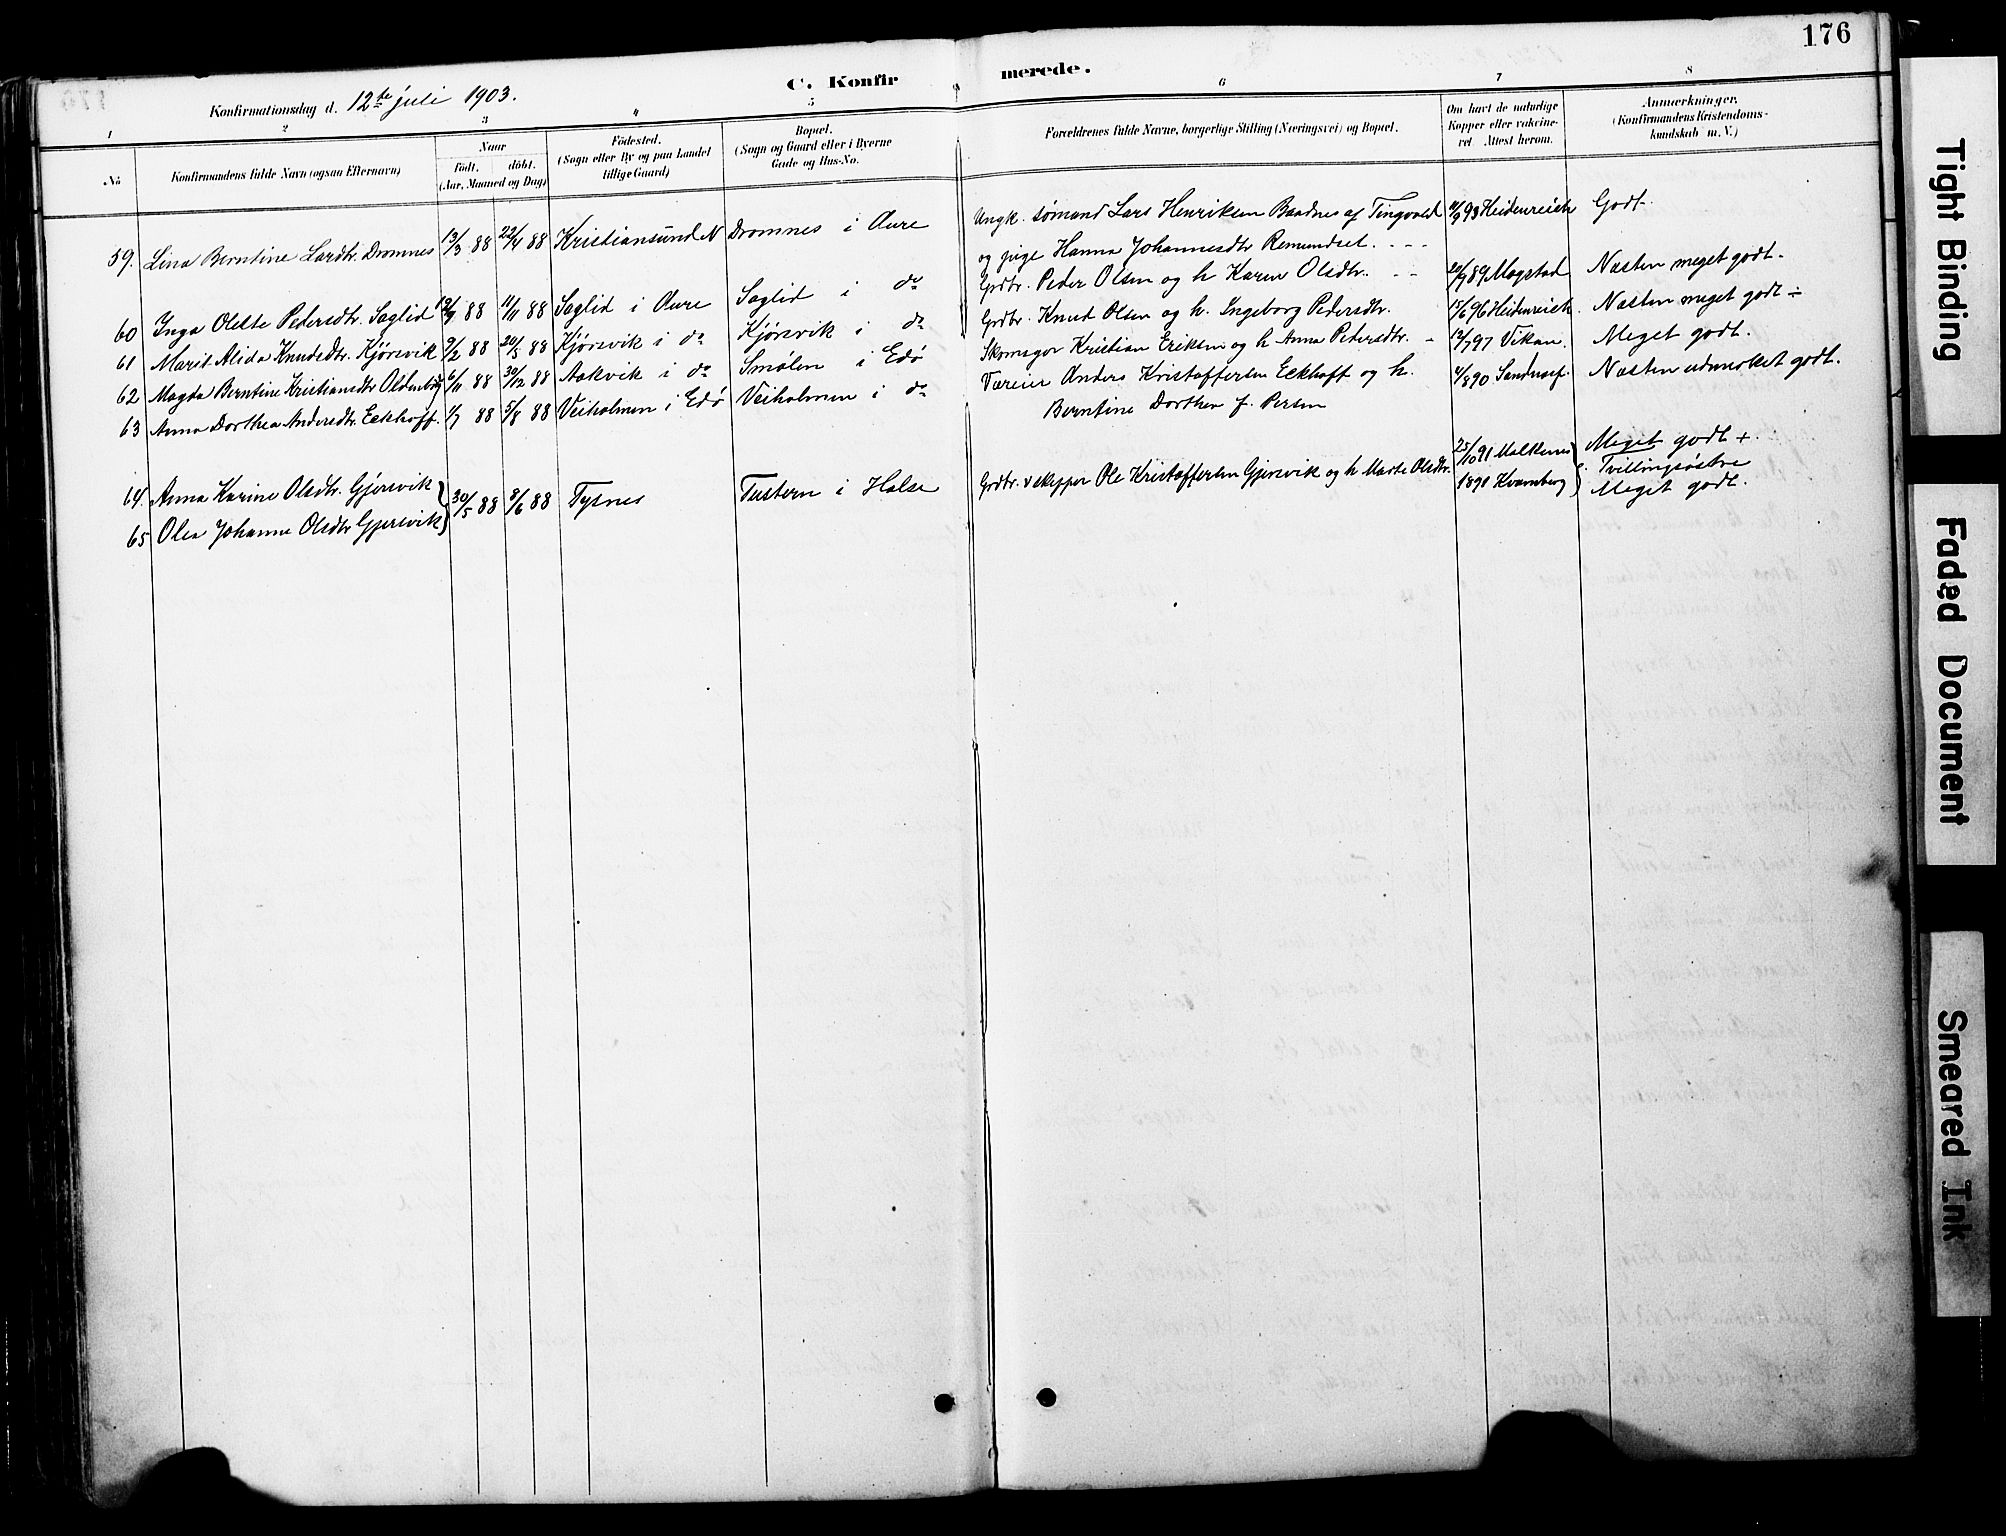 176
C. Konfirmerede.
Konfirmationsdag d. 12te juli 1903.
1 2 3 4 5 6 7 8
No
Konfirmandens fulde Navn (ogsaa Efternavn)
Naar
födt. döbt.
(Aar, Maaned og Dag)
Födested.
(Sogn eller By og paa Landet
tillige Gaard)
Bopæl.
(Sogn og Gaard eller i Byerne
Gade og Hus-No.
Forældrenes fulde Navne, borgerlige Stilling (Næringsvei) og Bopæl.
Om havt de naturlige
Kopper eller vakcine-
ret Attest herom.
Anmærkninger.
(Konfirmandens Kristendoms-
kundskab m. V.)
59. Lina Berntine Larsdtr. Dromnes 13/3 88 22/4 88 Kristiansund N Dromnes i Aure Ungk. sømand Lars Henriksen Baadnes af Tingvold 93 Heidenreich Godt.
og pige Hanna Johannesdtr Remundset. - - -
60 Inga Oleste Pedersdtr. Saglid 88 11/11 88 Saglid i Aure Saglid i do Grdbr. Peder Olsen og h Karen Olsdtr. - - 20/9 89 Mogstad Næsten meget godt.
61 Marit Alida Knudsdtr. Kjörsvik 9/2 88 20/5 88 Kjörsvik i do Kjörsvik i do Grdbr. Knud Olsen og h. Ingeborg Pedersdtr. 15/6 96 Heidenreich. Næsten meget godt ÷
62 Magda Berntine Kristiansdtr Oldenborg 6/11 88 30/12 88 Aakvik i do Smølen i Edø Skomagor Kristian Eriksen og h Anna Pedersdtr. - 12/7 97 Vikan. Meget godt.
63 Anna Dorthea Andersdtr. Eckhoff. 1/7 88 5/8 88 Veiholmen i Edø Veiholmen i do Væreier Anders Kristoffersen Eckhoff og h. 4/8 90 Næsten udmerket godt.
Berntine Dorthea f. Persen
64. Anna Karine Olsdtr. Gjersvik } 30/5 88 8/6 88 Tysnes Tustern i Halse Grdbr. & skipper Ole Kristoffersen Gjersvik og h Marte Olsdtr. 25/10 91 Meget godt +.
Tvillingsøstre
65 Olea Johanne Olsdtr Gjersvik 1891 Kvernberg Meget godt.
Tight Binding
Faded Document
Smeared Ink